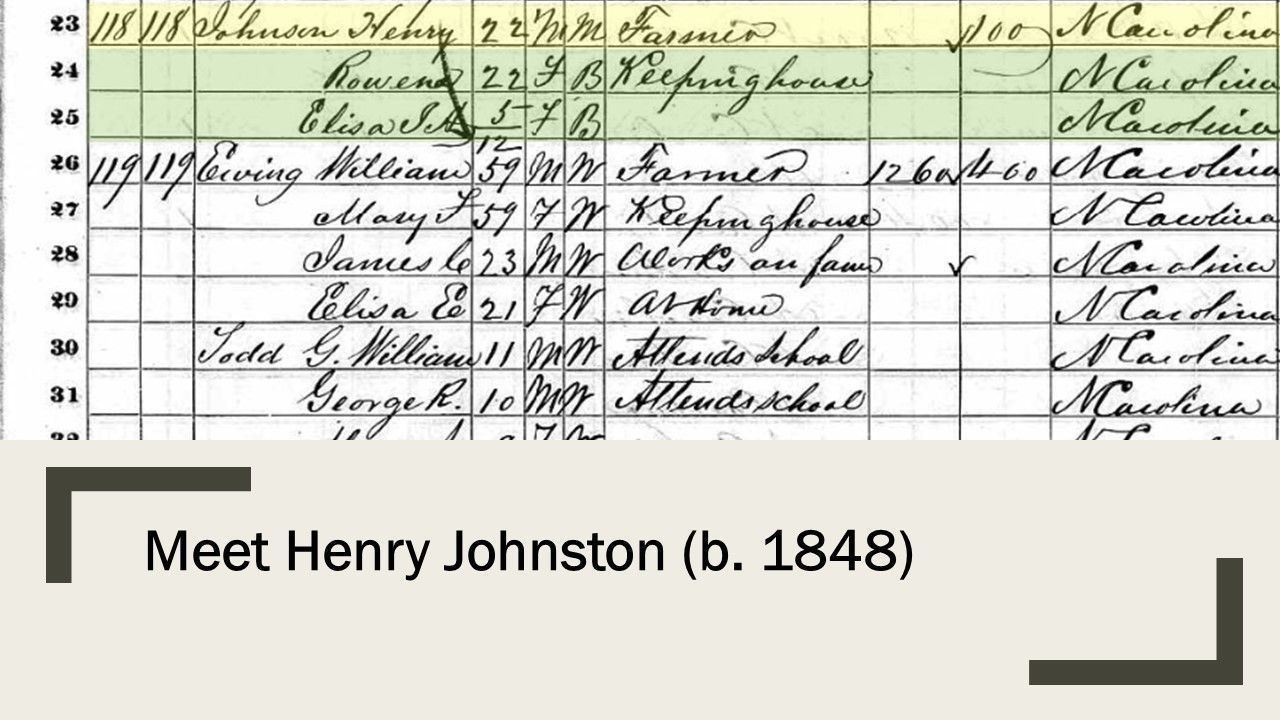 23 118 118 Johnson Henry 22 M M Farmer 100 N Carolina
24 Rowena 22 F B Keeping house N Carolina
25 Elisa J A 5/12 F B N Carolina
26 119 119 Ewing William 59 M W Farmer 1260 400 N Carolina
27 Mary F 59 F W Keeping house N Carolina
28 James C 23 M W Works on farm N Carolina
29 Elisa E 21 F W At Home N Carolina
30 Todd G. William 11 M W Attends School N Carolina
31 George R. 10 M W Attends school N Carolina
Meet Henry Johnston (b. 1848)